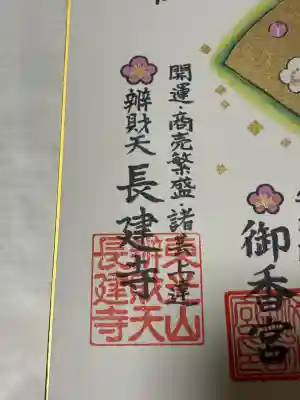 開運・商売繁盛・諸芸上達
辨財天 長建寺
東光山
辨財天
長建寺
御香宮